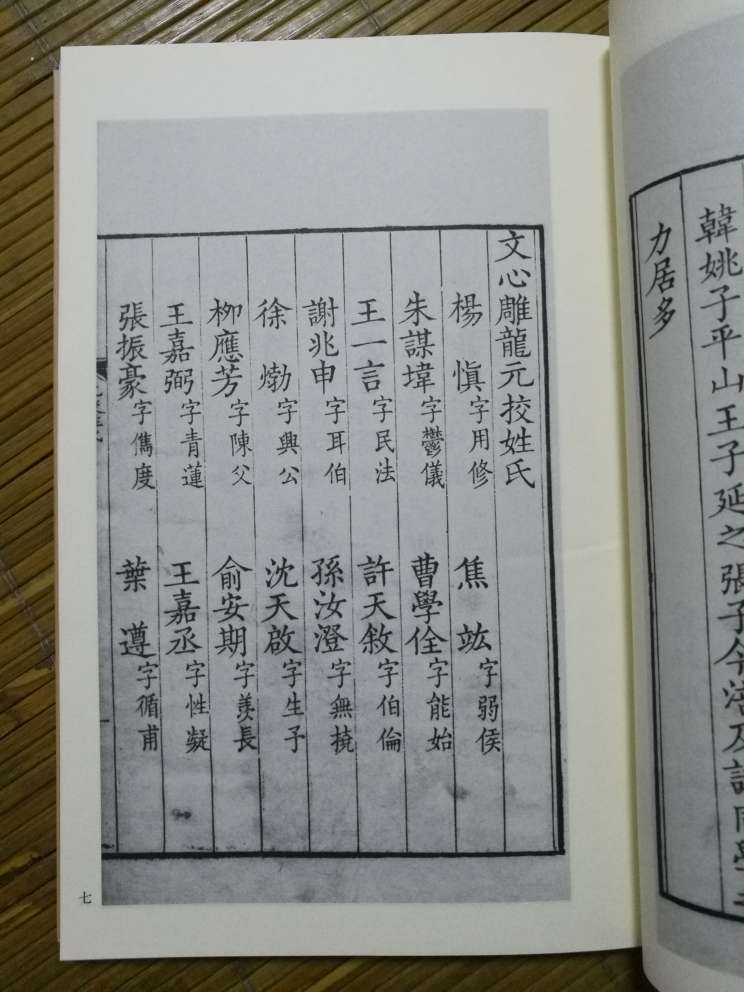 韓姚子平山王子延之張子今涪及諸同學
力居多
文心雕龍元挍姓氏
楊慎字用修 焦竑字弱侯
朱謀㙔字鬱儀 曹學佺字能始
王一言字民法 許天敘字伯倫
謝兆申字耳伯 孫汝澄字無撓
徐𤊹字興公 沈天啟字生予
柳應芳字陳父 俞安期字羨長
王嘉弼字青蓮 王嘉丞字性凝
張振豪字儁度 葉遵字循甫
七